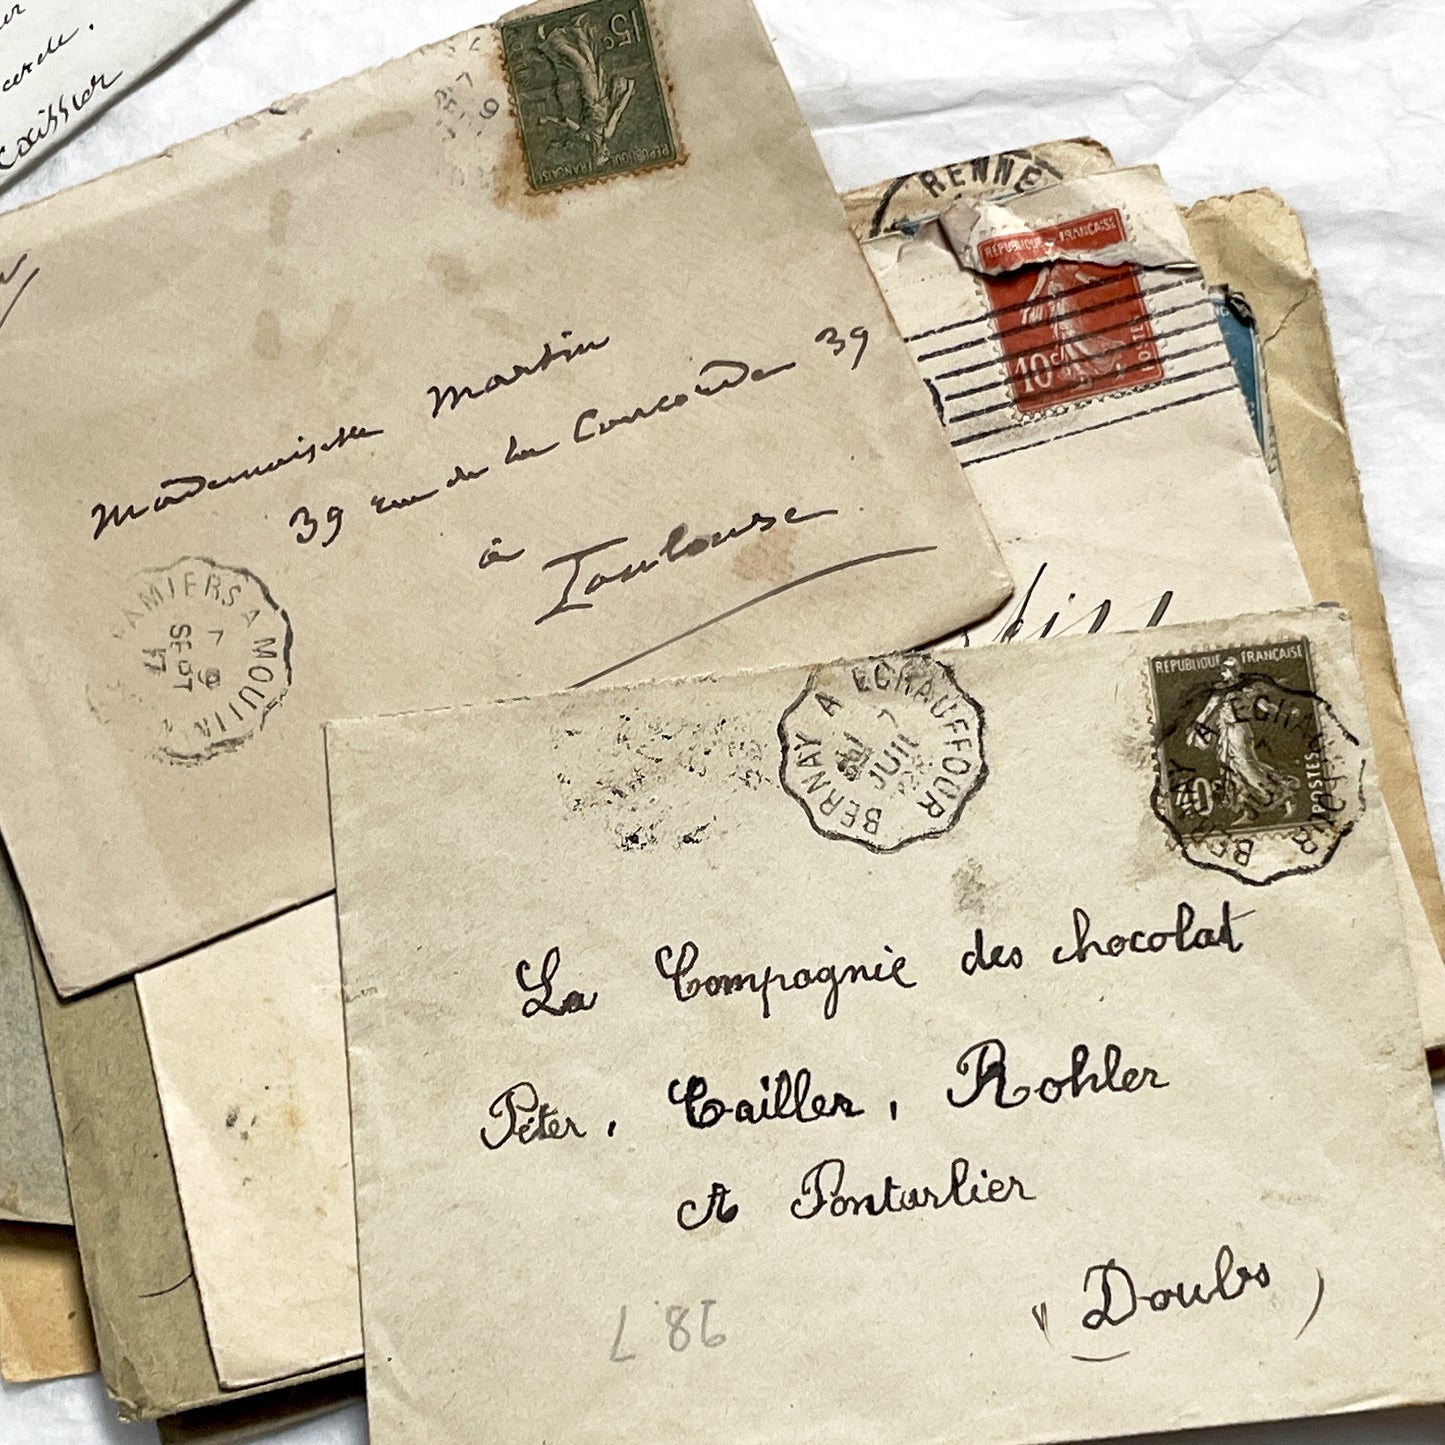 caissier
15c
REPUBLIQUE FRANÇAISE
Mademoiselle Martin
39 rue de la Concorde 39
à Toulouse
7
9
SEPT
17
RENNE
REPUBLIQUE FRANÇAISE
10c
POSTES
BERNAY A ECHAUFFOUR
7
JUIL
REPUBLIQUE FRANÇAISE
40c
POSTES
BERNAY A ECHAUFFOUR
La Compagnie des chocolat
Péter, Cailler, Kohler
A Pontarlier
(Doubs)
L 86